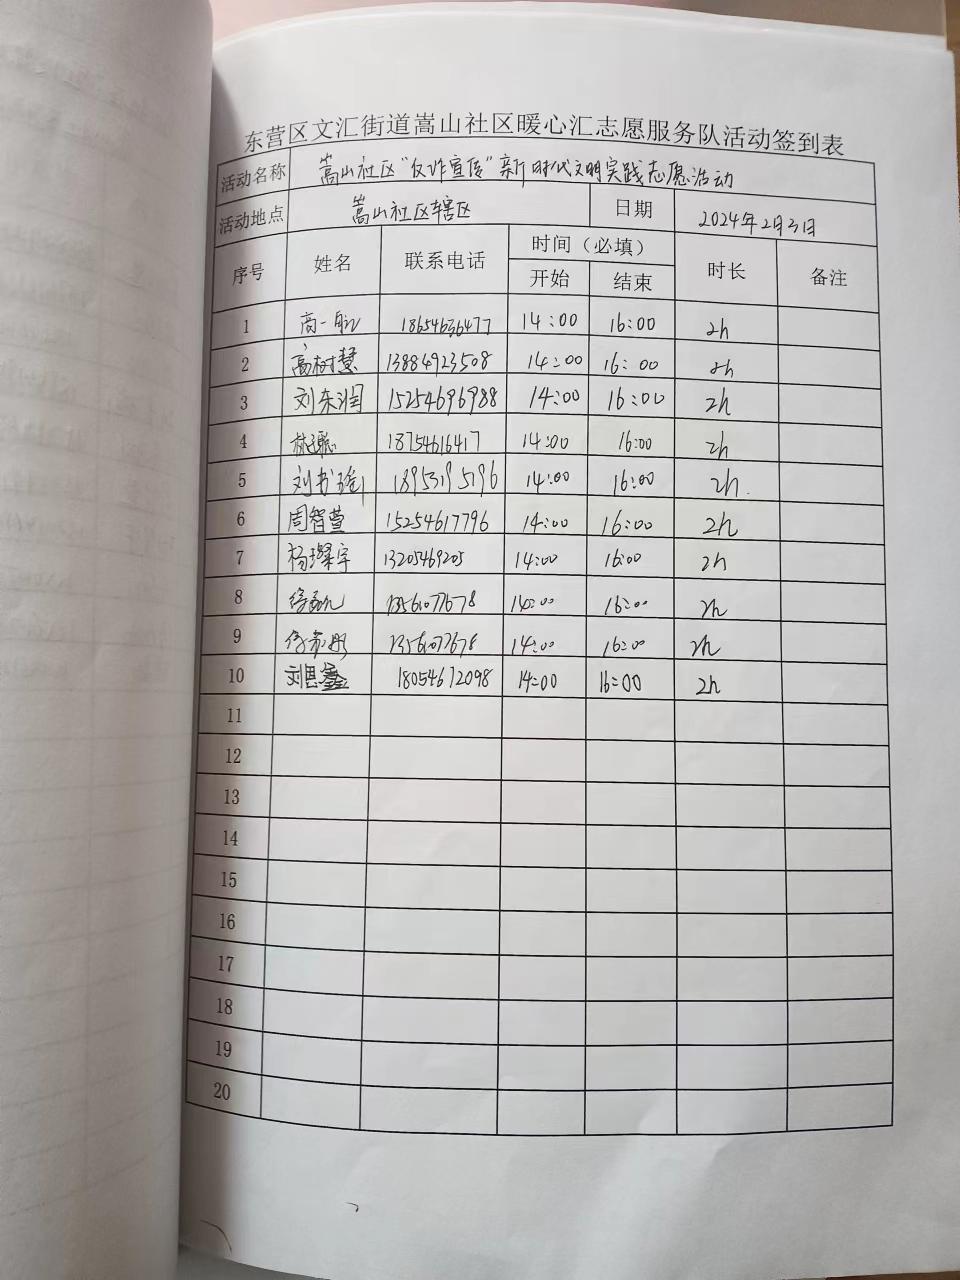 东营区文汇街道嵩山社区暖心汇志愿服务队活动签到表
活动名称 嵩山社区“反诈宣传”新时代文明实践志愿活动
活动地点 嵩山社区辖区 日期 2024年2月3日
序号 姓名 联系电话 时间（必填） 时长 备注
开始 结束
1 高一航 18654636477 14:00 16:00 2h
2 高树慧 13884923508 14:00 16:00 2h
3 刘东润 15254696988 14:00 16:00 2h
4 18754616417 14:00 16:00 2h
5 刘书瑶 18953195196 14:00 16:00 2h
6 周智萱 15254617796 14:00 16:00 2h
7 杨璨宇 13205469205 14:00 16:00 2h
8 13561077678 14:00 16:00 2h
9 13561077678 14:00 16:00 2h
10 刘思鑫 18054672098 14:00 16:00 2h
11
12
13
14
15
16
17
18
19
20